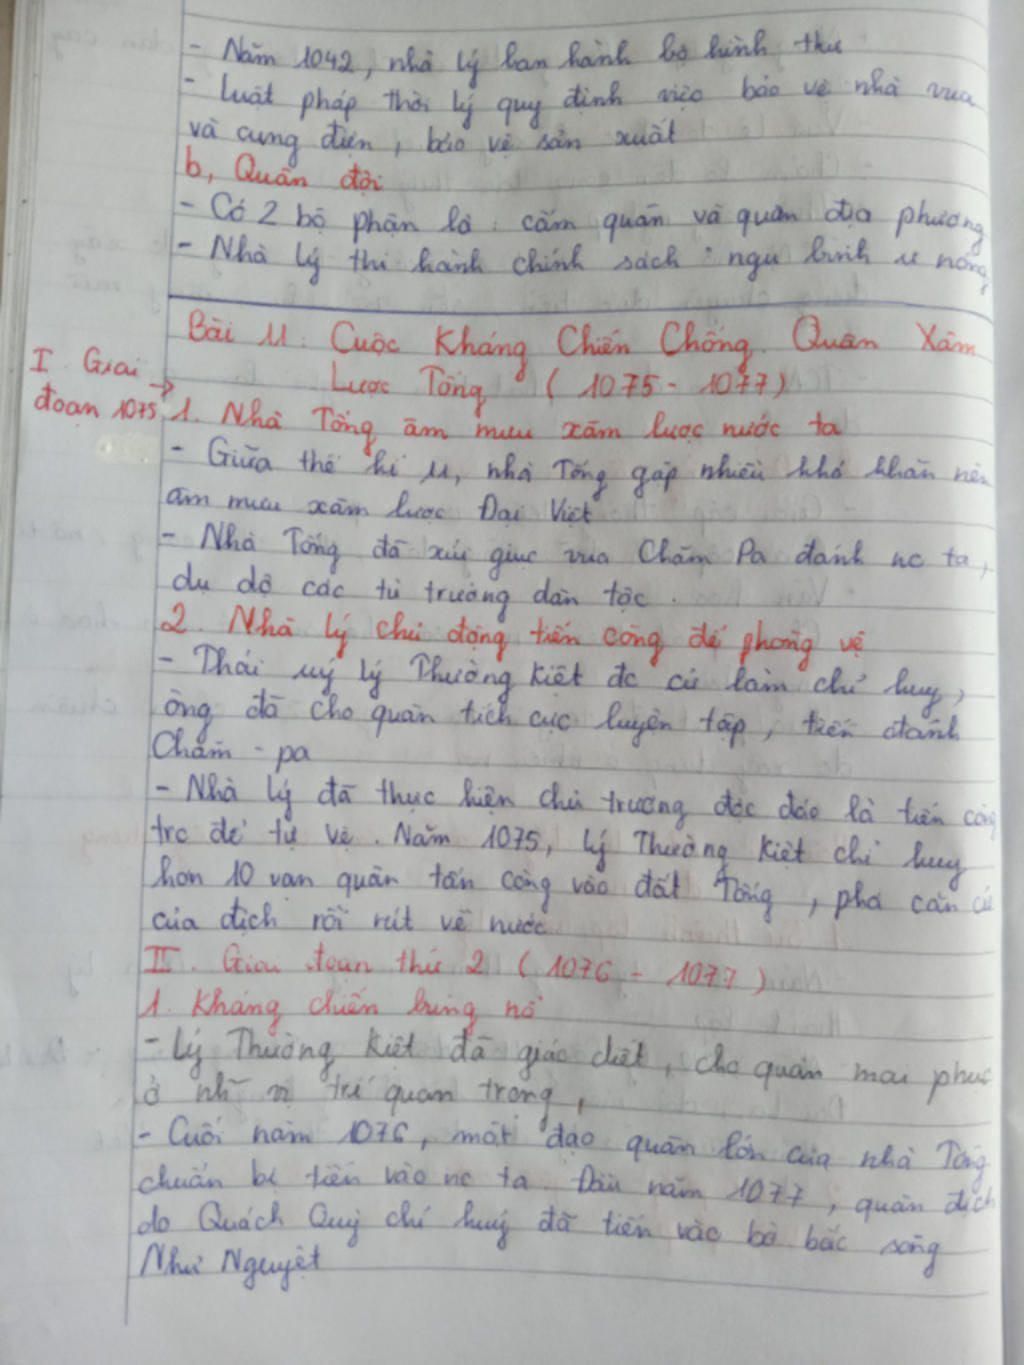 - Năm 1042, nhà Lý ban hành bộ hình thư
- Luật pháp thời Lý quy định việc bảo vệ nhà vua
và cung điện, bảo vệ sản xuất
b, Quân đội
- Có 2 bộ phận là : cấm quân và quân địa phương
- Nhà Lý thi hành chính sách : ngụ binh ư nông
Bài 11. Cuộc Kháng Chiến Chống Quân Xâm
Lược Tống (1075 - 1077)
I Giai
đoạn 1075 →
1. Nhà Tống âm mưu xâm lược nước ta
- Giữa thế kỉ 11, nhà Tống gặp nhiều khó khăn nên
âm mưu xâm lược Đại Việt
- Nhà Tống đã xúi giục vua Chăm Pa đánh nc ta,
dụ dỗ các tù trưởng dân tộc.
2. Nhà Lý chủ động tiến công để phòng vệ
- Thái uý Lý Thường Kiệt đc cử làm chỉ huy,
ông đã cho quân tích cực luyện tập, tiến đánh
Chăm - pa
- Nhà Lý đã thực hiện chủ trương độc đáo là tiến công
trc để tự vệ. Năm 1075, Lý Thường Kiệt chỉ huy
hơn 10 vạn quân tấn công vào đất Tống, phá căn cứ
của địch rồi rút về nước
II. Giai đoạn thứ 2 (1076 - 1077)
1. Kháng chiến bùng nổ
- Lý Thường Kiệt đã giáo diết, cho quân mai phục
ở nh~ vị trí quan trọng,
- Cuối năm 1076, một đạo quân lớn của nhà Tống
chuẩn bị tiến vào nc ta. Đầu năm 1077, quân địch
do Quách Quỳ chỉ huy đã tiến vào bờ bắc sông
Như Nguyệt